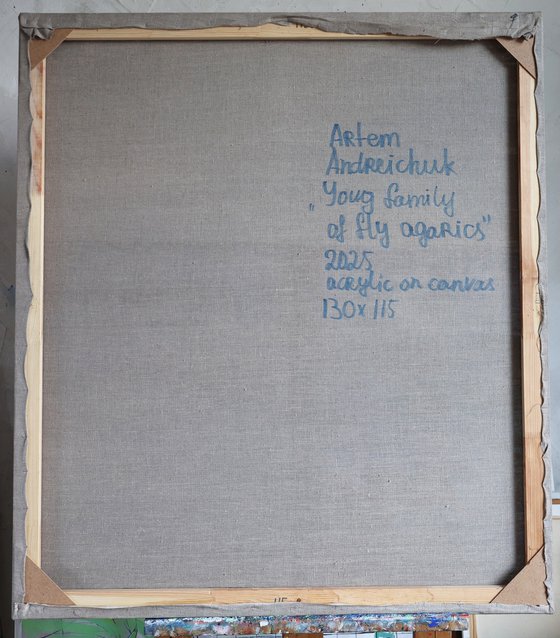 Artem
Andreichuk
„Youg family
of fly agarics"
2025
acrylic on canvas
130x115